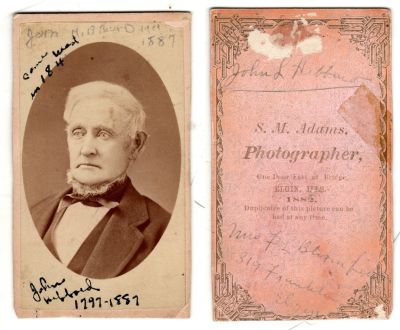 John Hibbard
1887
came west
in 184
John
Hibbard
1797-1887
John L Hibbard
S. M. Adams,
Photographer,
One Door East of Bridge,
ELGIN, ILLS.
1882.
Duplicates of this picture can be
had at any time.
Mrs F L
Franklin